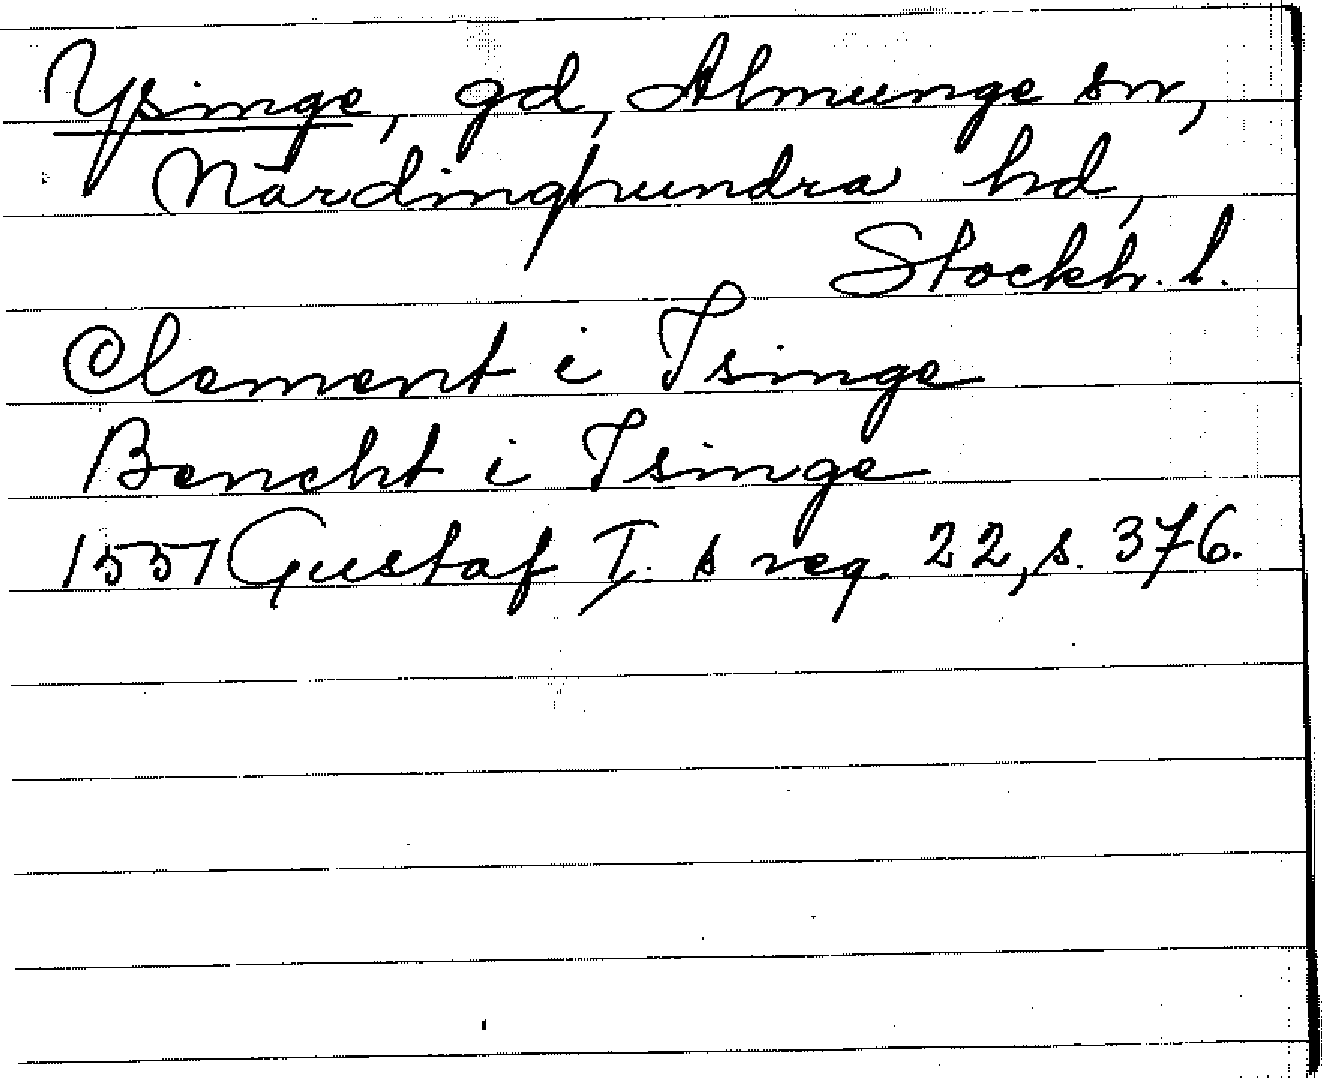 Ysinge, gd, Almunge sn,
Närdinghundra hd,
Stockh. l.
Clement i Isinge
Bencht i Isinge
1557 Gustaf I. s reg. 22, s. 376.